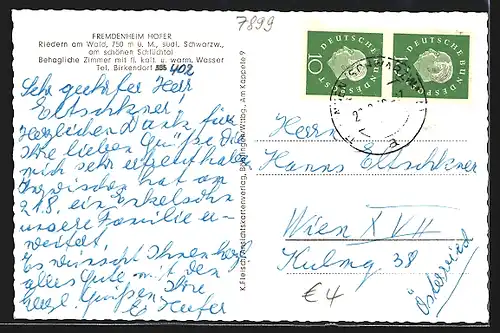 7899
FREMDENHEIM HOFER
Riedern am Wald, 750 m ü. M., südl. Schwarzw.,
am schönen Schlüchtal
Behagliche Zimmer mit fl. kalt. u. warm. Wasser
Tel. Birkendorf 402
Sehr geehrter Herr
Eltschkner!
Herzlichen Dank für
Ihre lieben Grüße die
mich sehr erfreut haben
Inzwischen hat am
21.8. ein Enkelsohn
unsere Familie er-
weitert.
Es wünscht Ihnen
alles Gute mit den
Grüßen Ihre
E. Hofer
K. Fleisch, Ansichtskartenverlag, Am Kappele 9
10
DEUTSCHE BUNDESPOST
DEUTSCHE BUNDESPOST
a
Herrn
Hanns Eltschkner
Wien XVII
Kulmg 38
Österreich
€ 4